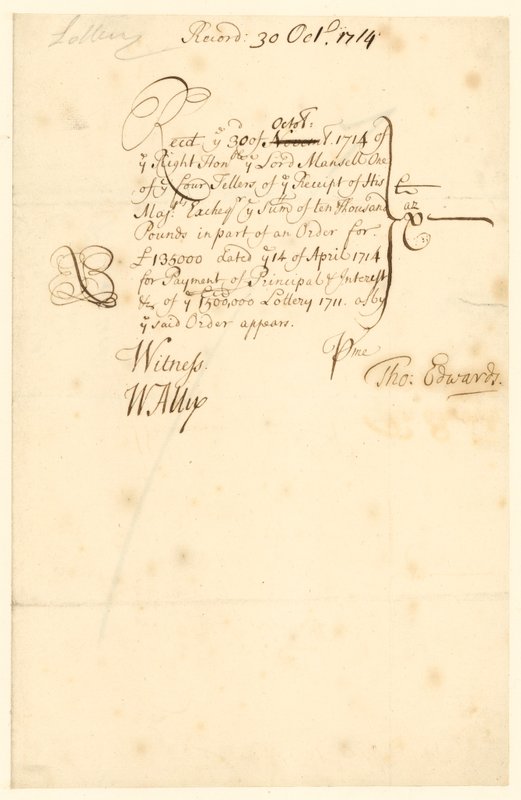 Lottery
Record: 30 Octr. 1714
Recd ye 30d of Octobr: 1714 of
ye Right Honble ye Lord Mansell One
of ye four Tellers of ye Receipt of His
Majtys Excheqr ye Sum of ten Thousand
Pounds in part of an Order for
£135000 dated ye 14 of April 1714
for Payment of Principal & Interest
&c. of ye 1500,000 Lottery 1711. as by
ye said Order appears.
Witness. Pme
Tho: Edwards.